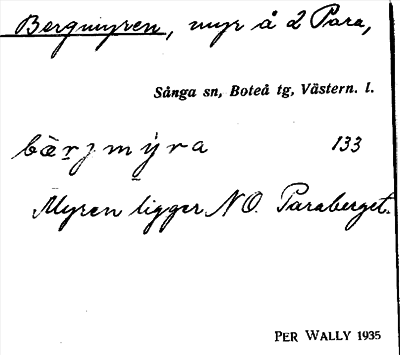 Bergmyren, myr å 2 Para,
Sånga sn, Boteå tg, Västern. l.
bæ̀rjmýra 133
Myren ligger NO. Paraberget.
PER WALLY 1935